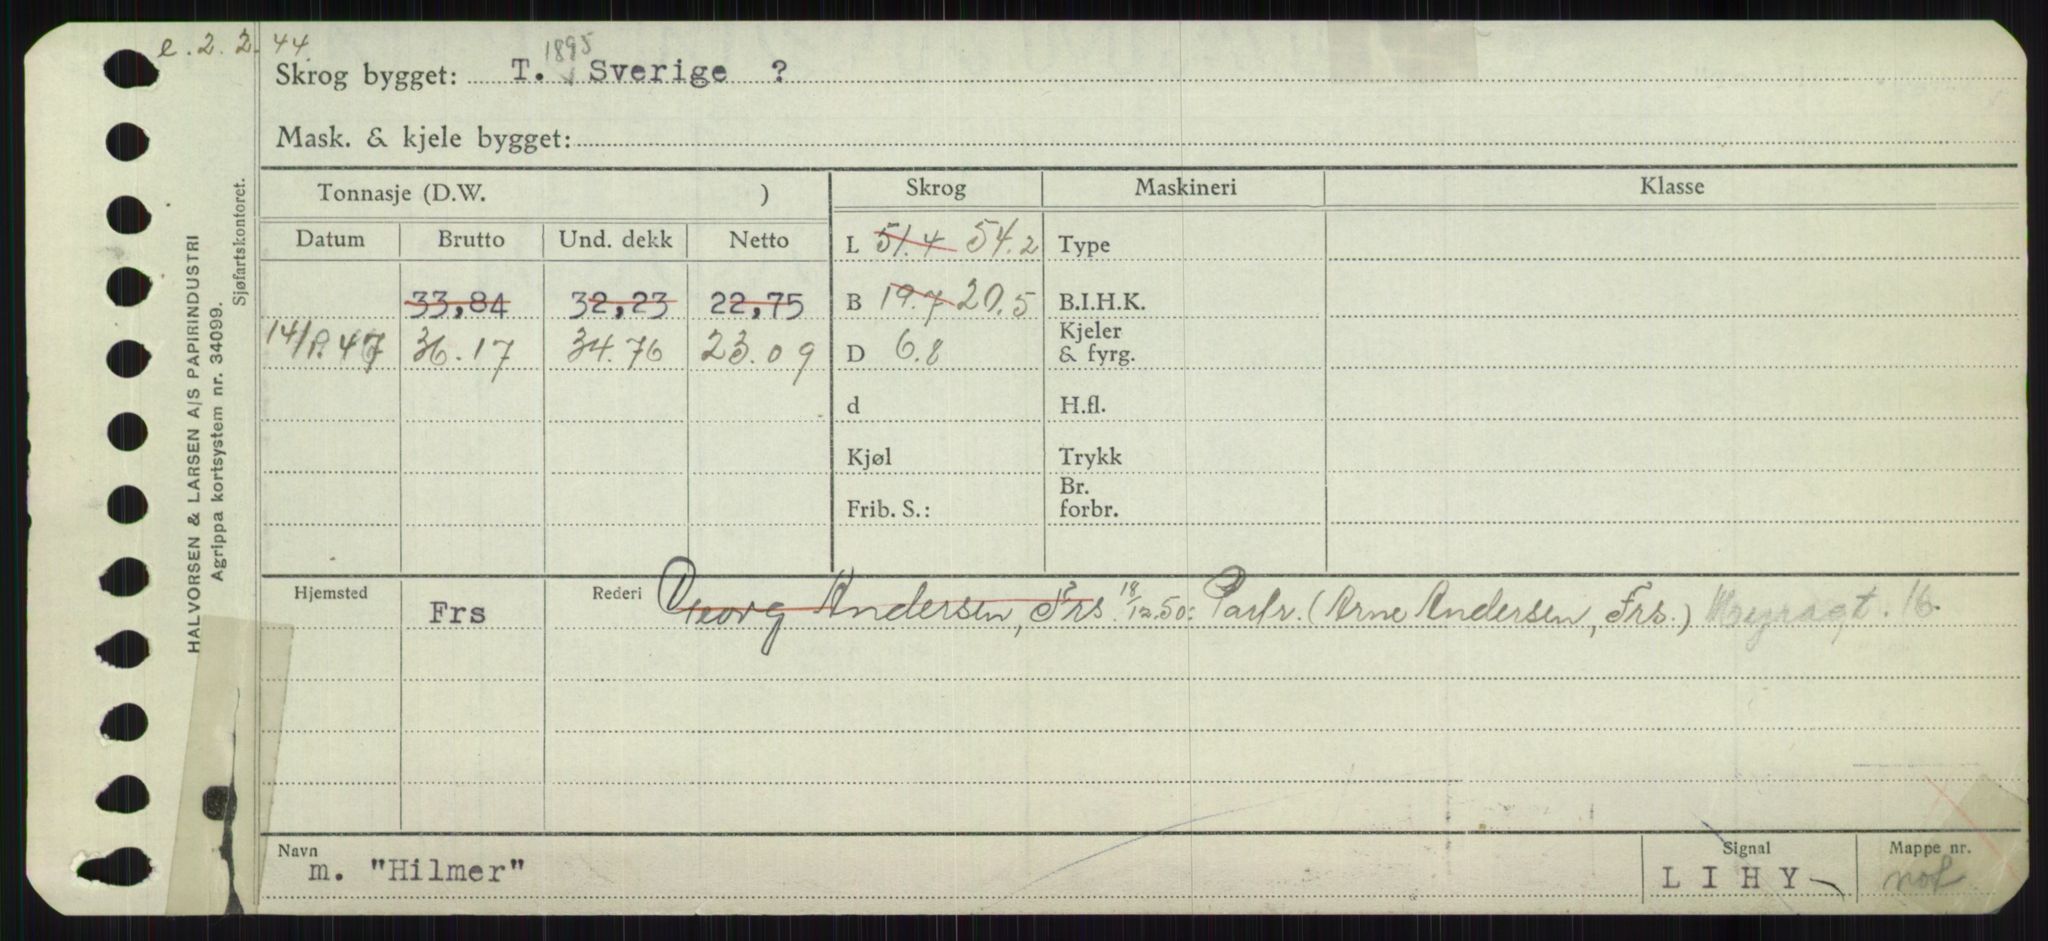 e. 2. 2. 44
1895
Skrog bygget: T. Sverige ?
Mask. & kjele bygget:
HALVORSEN & LARSEN A/S PAPIRINDUSTRI
Agrippa kortsystem nr. 34099.
Sjøfartskontoret.
Tonnasje (D.W. ) Skrog Maskineri Klasse
Datum Brutto Und. dekk Netto L 51.4 54.2 Type
33,84 32,23 22,75 B 19.7 20.5 B.I.H.K.
36.17 34.76 23.09 D 6.8 Kjeler & fyrg.
d H.fl.
Kjøl Trykk
Frib. S.: Br. forbr.
Hjemsted Frs Rederi Georg Andersen, Frs. 18/12.50: Partr. (Arne Andersen, Frs.) 16.
Navn m. "Hilmer" Signal L I H Y Mappe nr.